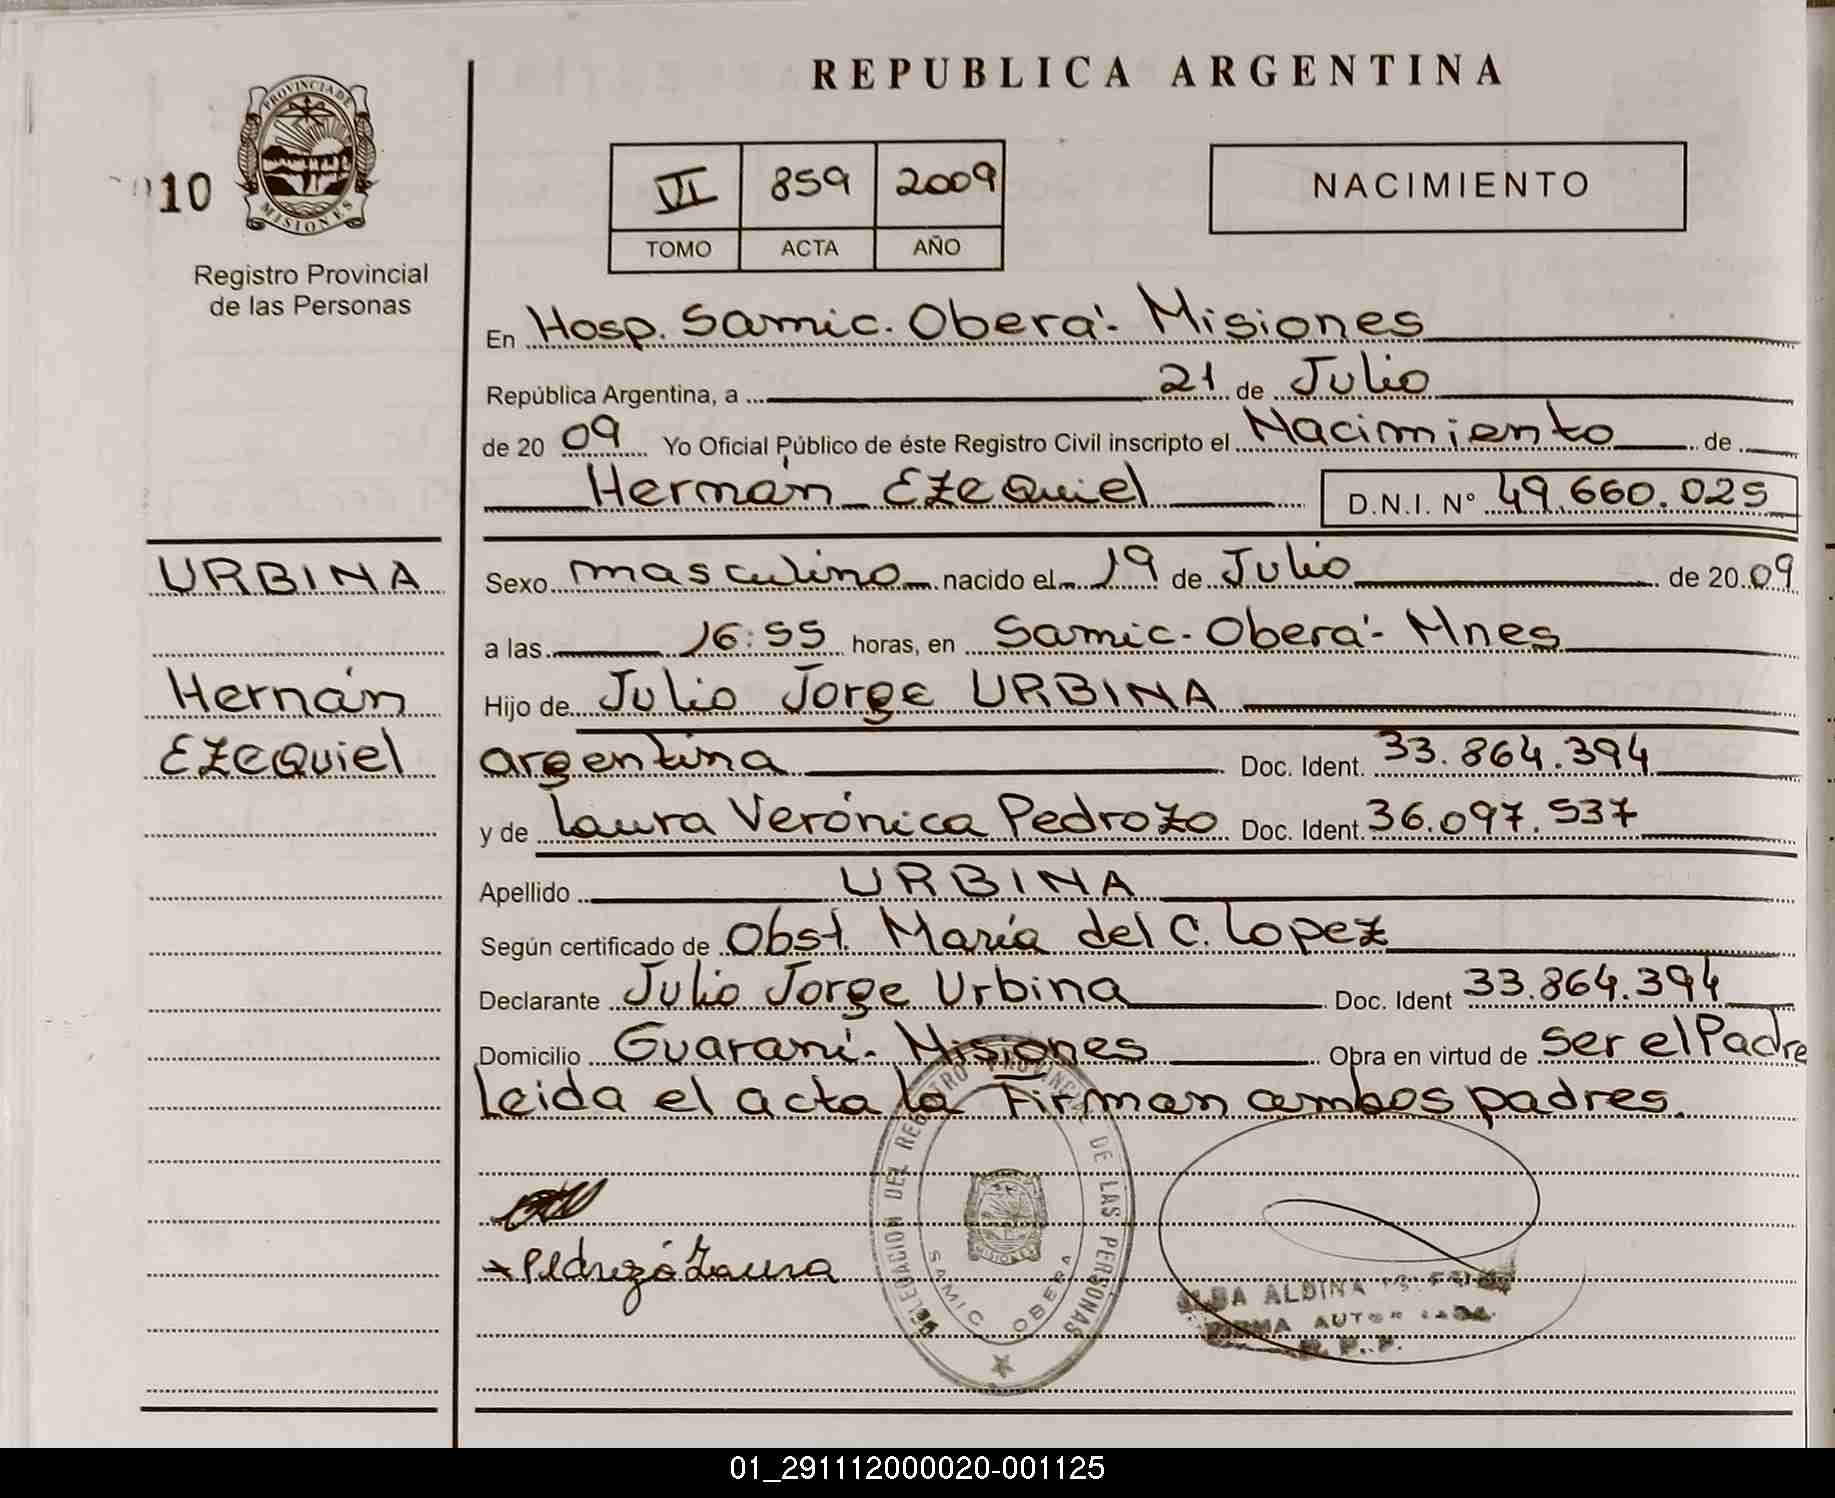 REPUBLICA ARGENTINA
PROVINCIA DE
MISIONES
10
Registro Provincial
de las Personas
VI 859 2009
TOMO ACTA AÑO
NACIMIENTO
En Hosp. Samic. Oberá - Misiones
República Argentina, a 21 de Julio
de 20 09 Yo Oficial Público de éste Registro Civil inscripto el Nacimiento de
Hernán Ezequiel D.N.I. Nº 49.660.025
URBINA
Hernán
Ezequiel
Sexo masculino nacido el 19 de Julio de 20 09
a las 16:55 horas, en Samic - Oberá - Mnes
Hijo de Julio Jorge URBINA
argentina Doc. Ident. 33.864.394
y de Laura Verónica Pedrozo Doc. Ident. 36.097.537
Apellido URBINA
Según certificado de Obst. María del C. Lopez
Declarante Julio Jorge Urbina Doc. Ident 33.864.394
Domicilio Guaraní - Misiones Obra en virtud de ser el Padre
Leida el acta la Firman ambos padres.
DELEGACION DEL REGISTRO PROVINCIAL DE LAS PERSONAS
MISIONES
SAMIC OBERA
Pedrozo Laura
ALBA ALBINA
FIRMA AUTORIZADA
R. P. P.
01_291112000020-001125